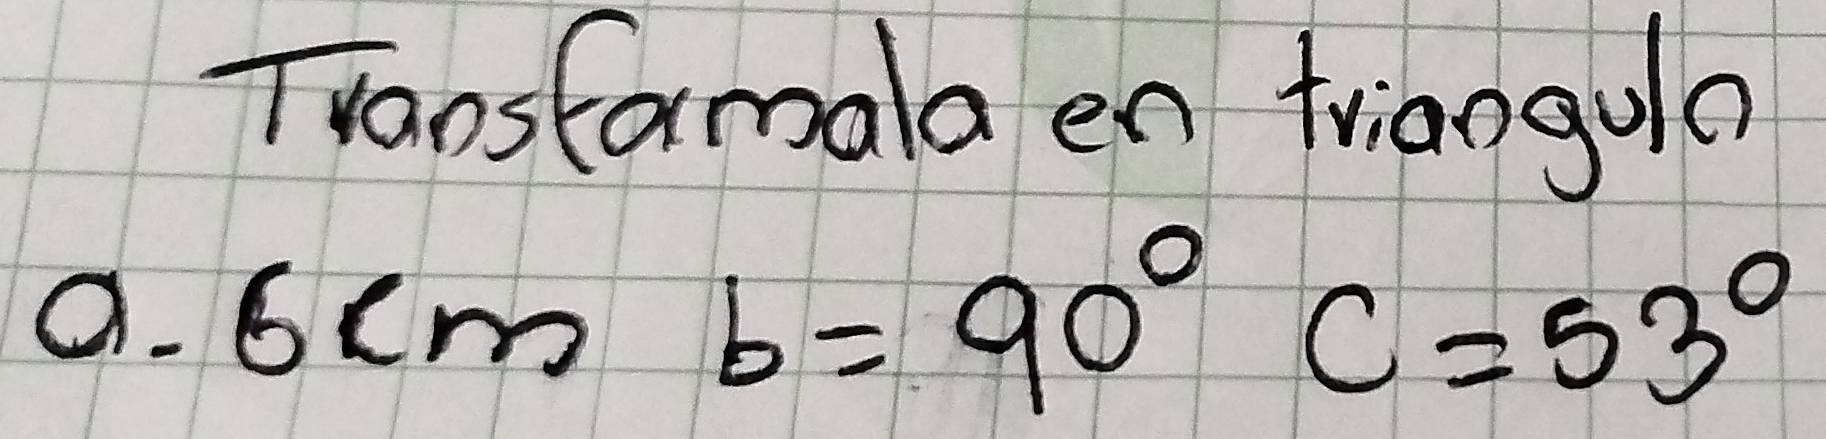 Transformala en triangulo
a. 6cm b = 90° C = 53°